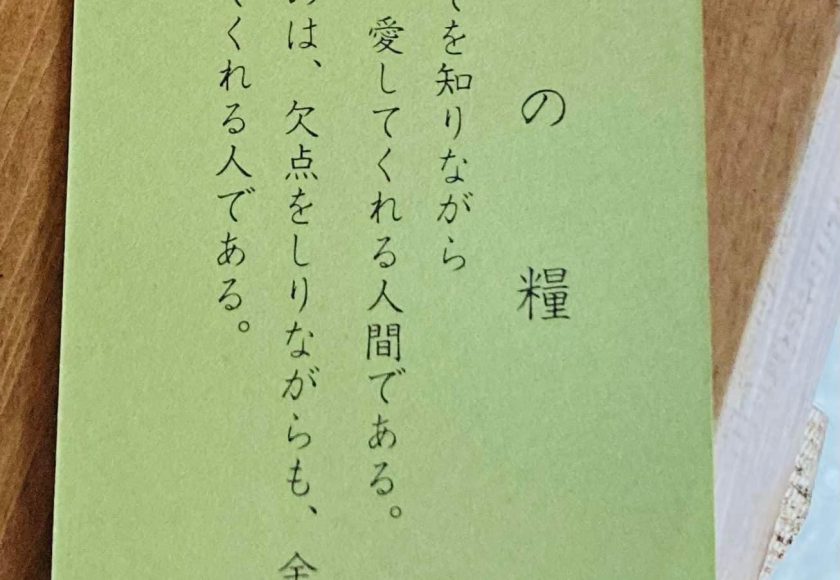 の糧
を知りながら
愛してくれる人間である。
は、欠点をしりながらも、全
くれる人である。